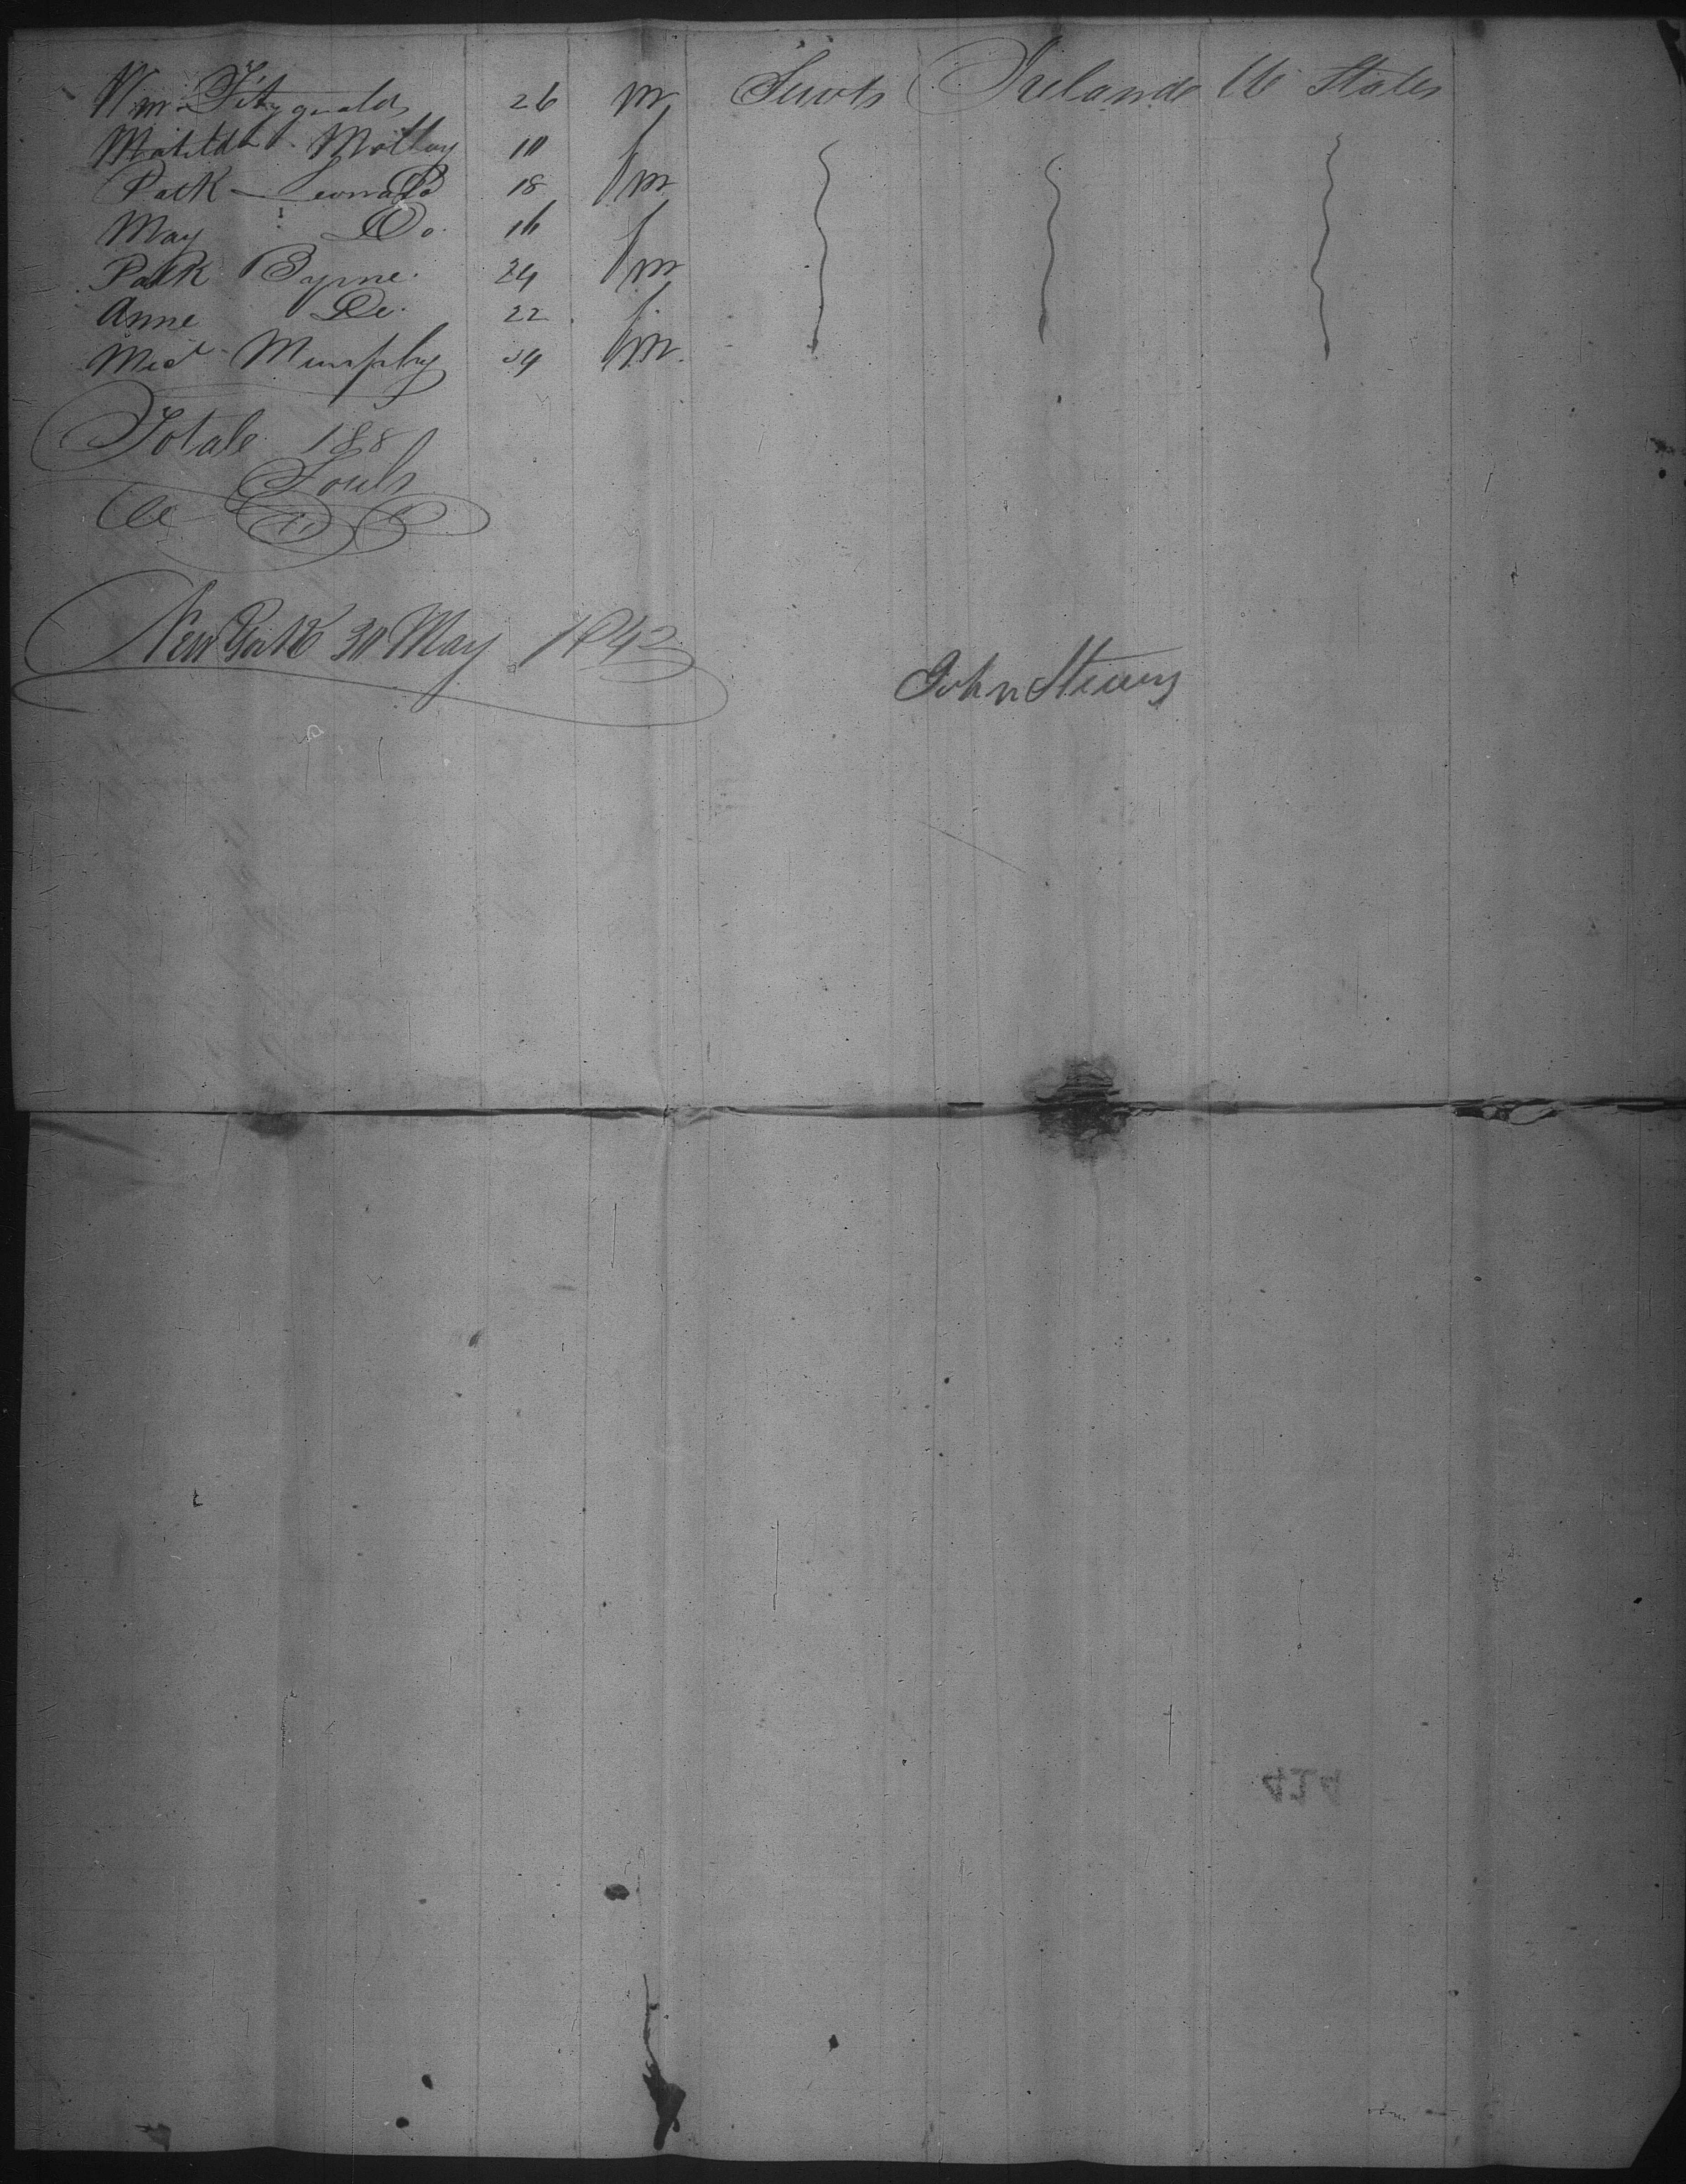 Wm Fitzgerald 26 m Servts Ireland U States
Matilda Molloy 10 f
Patk Leonard 18 m
May Do. 16 f
Patk Byrne. 24 m
Anne Do. 22 f
Micl Murphy 34 m.
Total 188
Souls
New York 30 May 1842
John
424